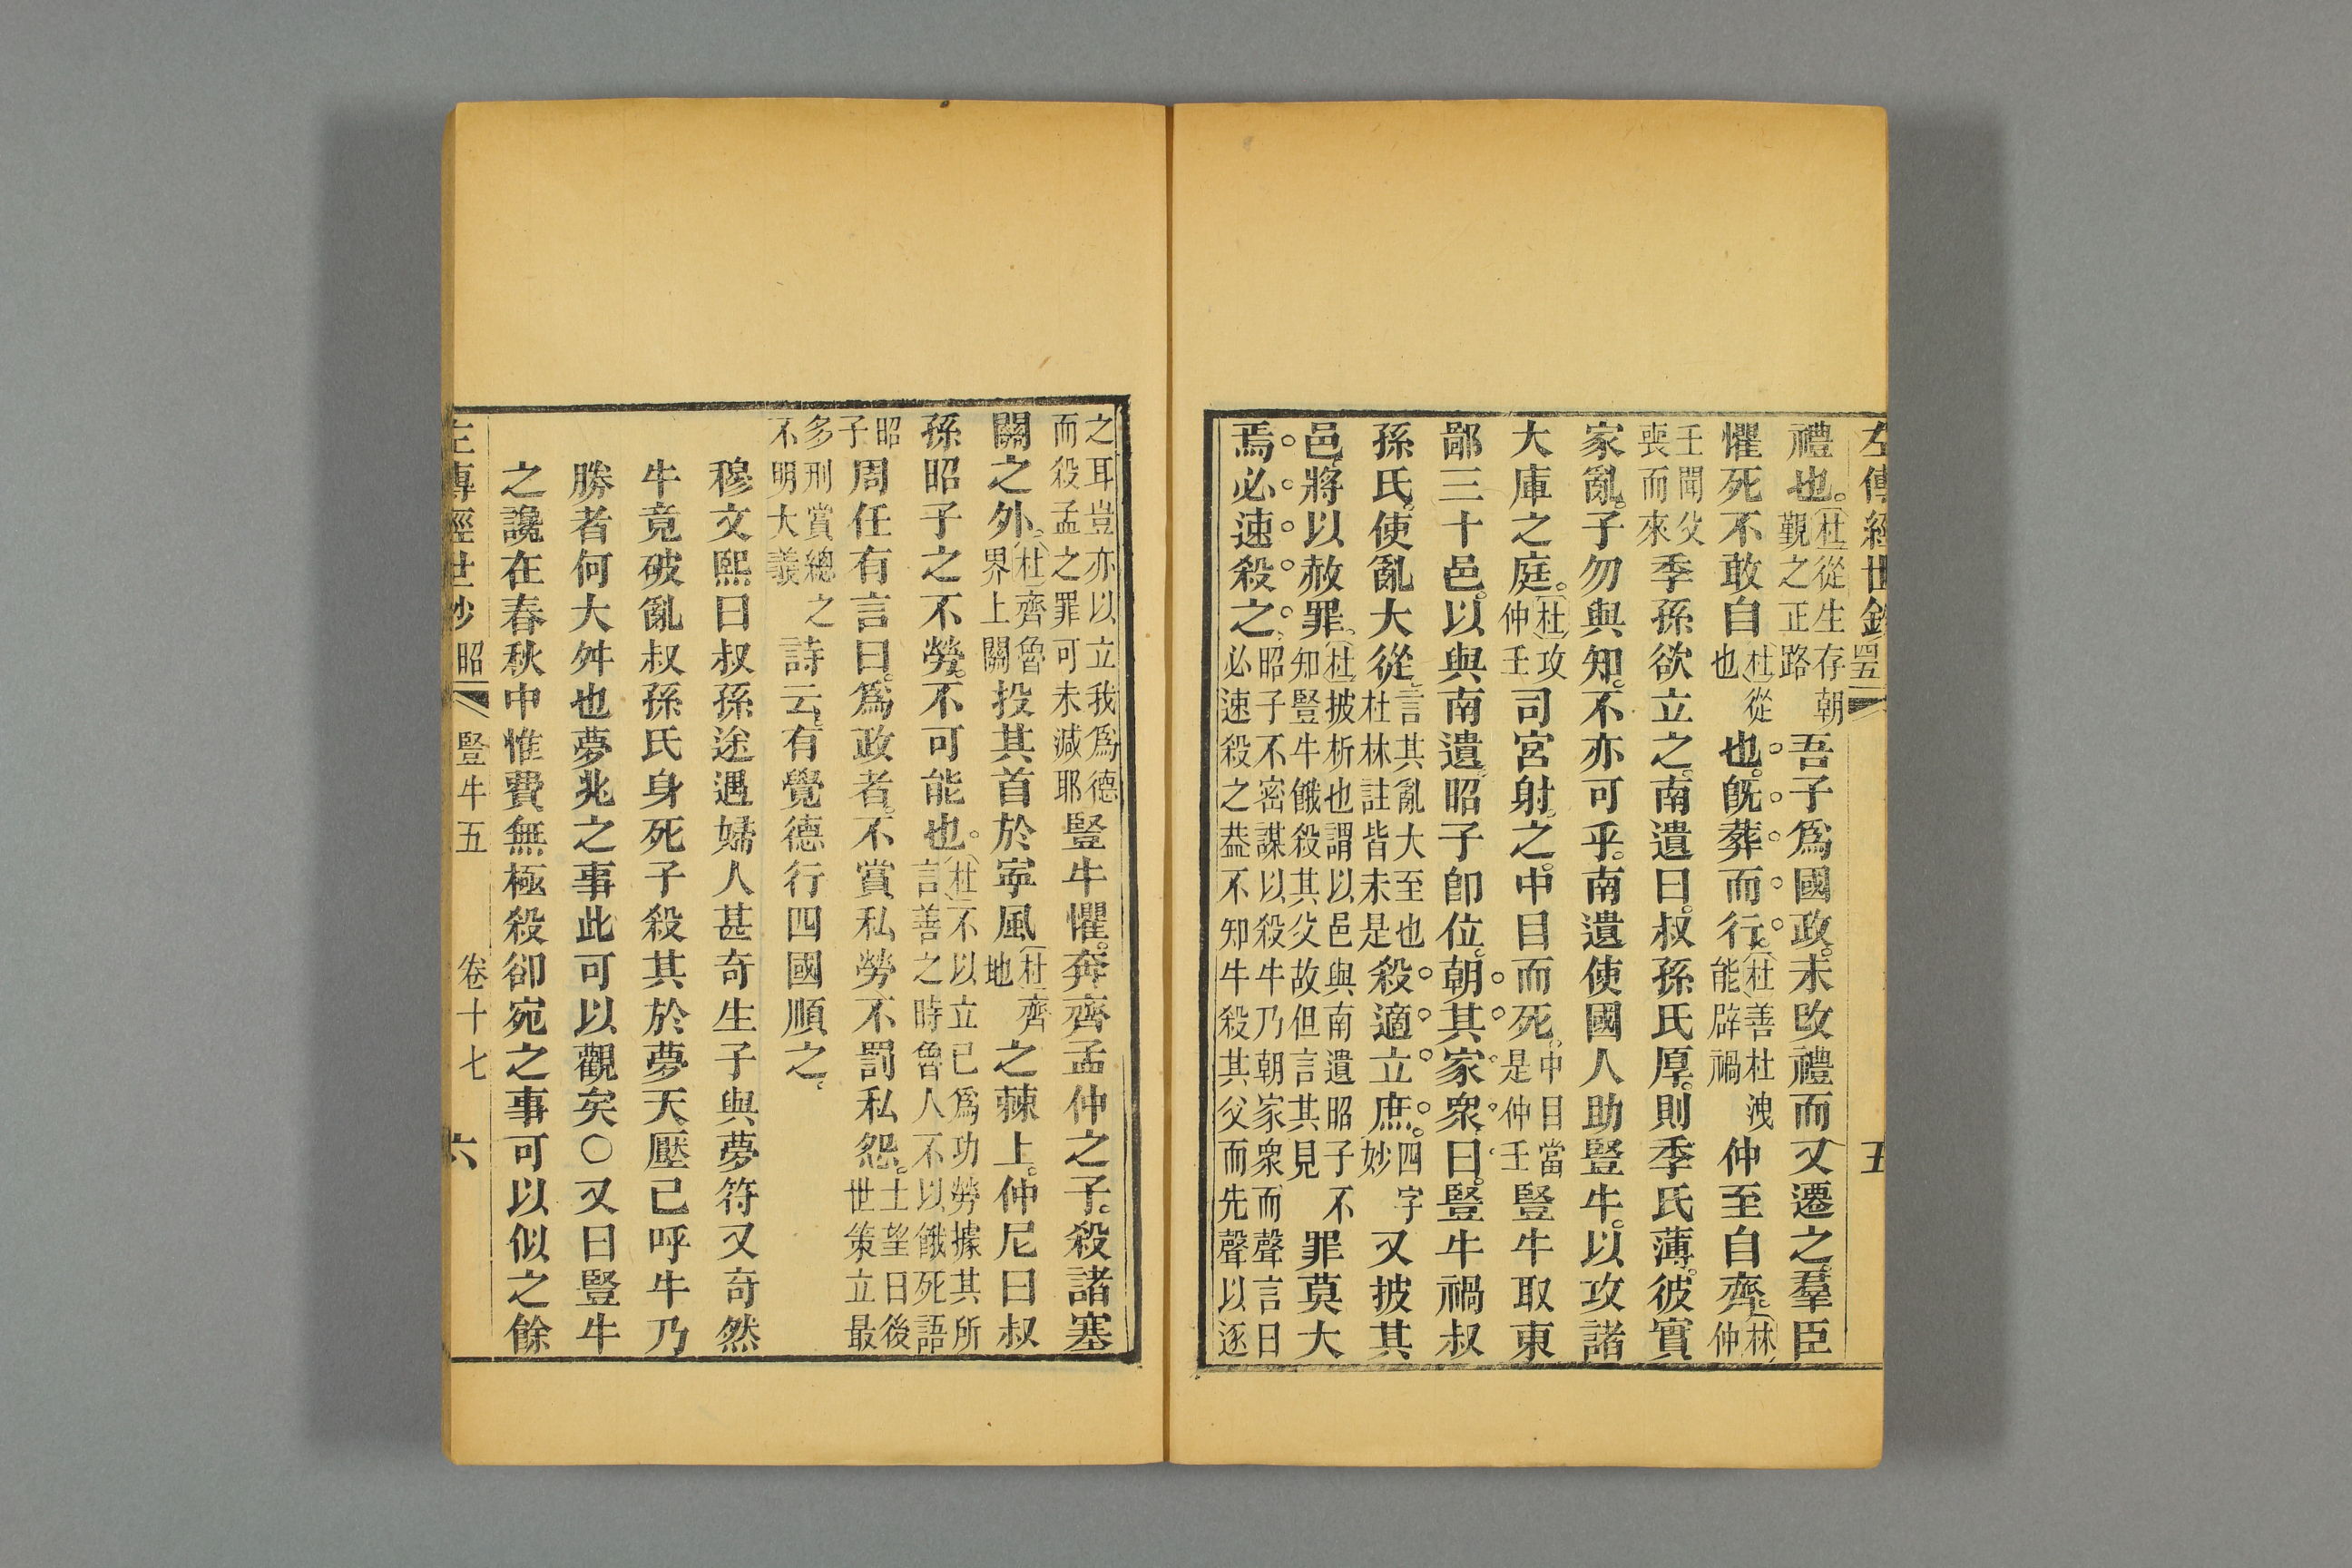 左傳經世鈔 四五 五
禮也。杜從生存朝覲之正路吾子爲國政。未攺禮而又遷之。羣臣
懼死不敢自杜從也也。旣葬而行。杜善杜洩能辟禍仲至自齊。林仲
壬聞父喪而來季孫欲立之。南遺曰。叔孫氏厚。則季氏薄。彼實
家亂。子勿與知。不亦可乎。南遺使國人助豎牛。以攻諸
大庫之庭。杜攻仲壬司宮射之。中目而死。中目當是仲壬豎牛取東
鄙三十邑。以與南遺。昭子卽位。朝其家衆。曰。豎牛禍叔
孫氏。使亂大從。言其亂大至也杜林註皆未是殺適立庶。四字妙又披其
邑。將以赦罪。杜披析也謂以邑與南遺昭子不知豎牛餓殺其父故但言其見罪莫大
焉。必速殺之。昭子不密謀以殺牛乃朝家衆而聲言曰必速殺之葢不知牛殺其父而先聲以逐
之耳豈亦以立我爲德而殺孟之罪可未減耶豎牛懼。奔齊孟仲之子。殺諸塞
關之外。杜齊魯界上關投其首於寧風杜齊地之棘上。仲尼曰叔
孫昭子之不勞。不可能也。杜不以立已爲功勞據其所言善之時魯人不以餓死語
昭子周任有言曰。爲政者。不賞私勞不罰私怨。士望曰後世策立最
多刑賞總之不明大義詩云。有覺德行四國順之。
穆文熙曰叔孫途遇婦人甚奇生子與夢符又奇然
牛竟破亂叔孫氏身死子殺其於夢天壓己呼牛乃
勝者何大舛也夢兆之事此可以觀矣○又曰豎牛
之讒在春秋中惟費無極殺卻宛之事可以似之餘
左傳經世鈔 昭 豎牛五 卷十七 六